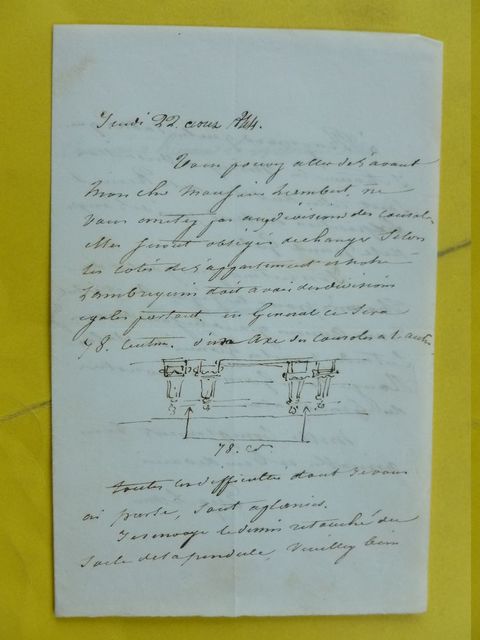 Jeudi 22 aout 1844.
Vous pouvez aller de l'avant
Mon cher Monsieur Lambert ne
vous arretez pas aux divisions des consoles
elles seront obligés de changer selon
les cotés de l'appartement et votre
Lambrequin doit avoir des divisions
egales partout. en General ce sera
78. Centim. d'un axe des consoles a l'autre.
78. c
toutes les difficultés dont je vous
ai parlé, sont aplanies.
Je renvoye le dessin retouché du
socle de la pendule, Veuillez bien